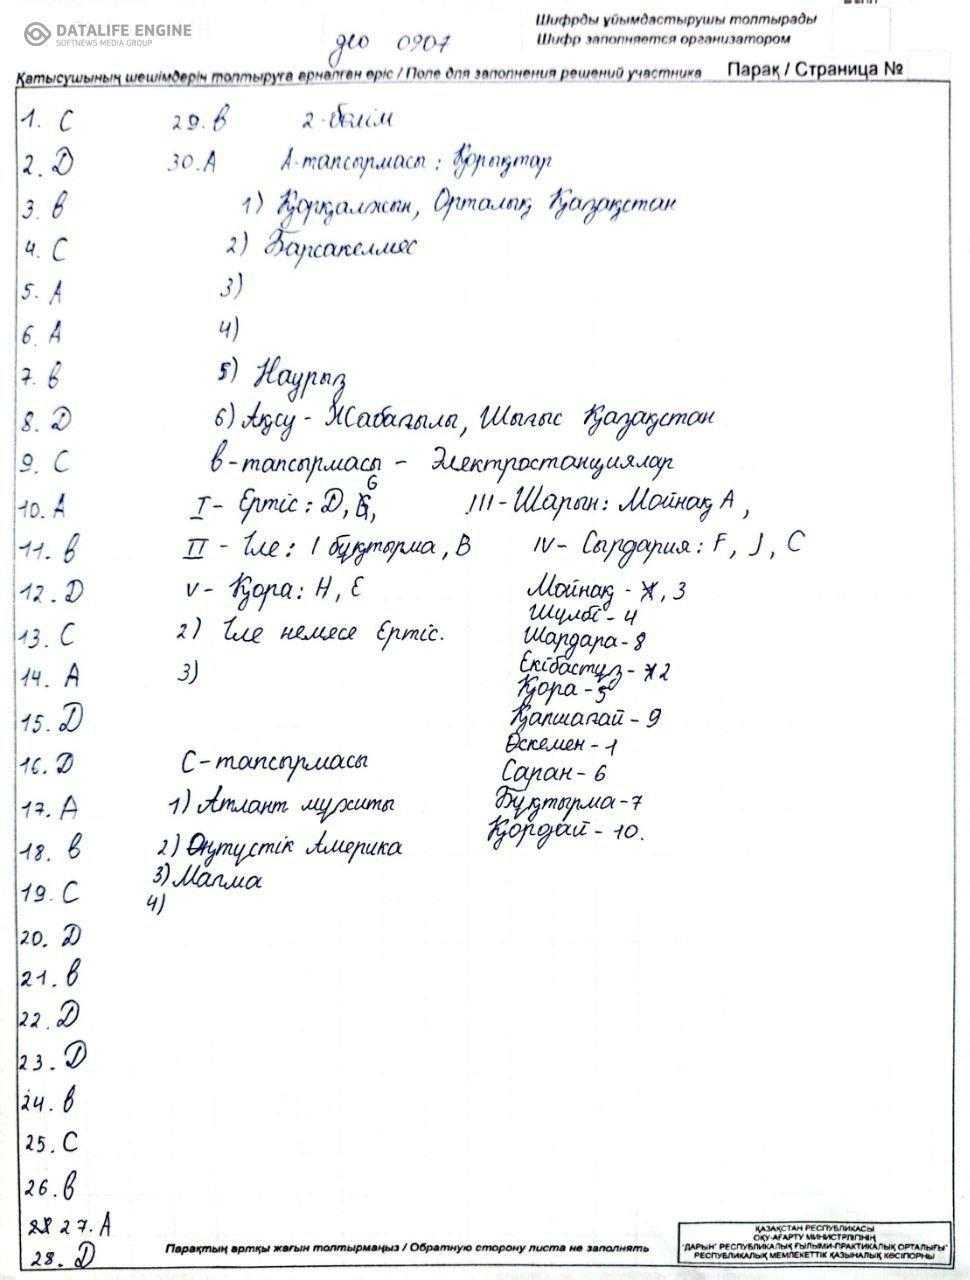 DATALIFE ENGINE
SOFTNEWS MEDIA GROUP
Шифрды ұйымдастырушы толтырады
гео 0907
Шифр заполняется организатором
Қатысушының шешімдерін толтыруға арналған өріс / Поле для заполнения решений участника
Парақ / Страница №
1. C
2. D
3. B
4. C
5. A
6. A
7. B
8. D
9. C
10. A
11. B
12. D
13. C
14. A
15. D
16. D
17. A
18. B
19. C
20. D
21. B
22. D
23. D
24. B
25. C
26. B
27. A
28. D
29. B
30. A
2-бөлім
А-тапсырмасы: Қорықтар
1) Қорқалжын, Орталық Қазақстан
2) Барсакелмес
3)
4)
5) Наурыз
6) Ақсу - Жабағылы, Шығыс Қазақстан
B-тапсырмасы - Электростанциялар
I - Ертіс: D, G,
III - Шарын: Мойнақ A,
II - Іле: I бұқтырма, B
IV - Сырдария: F, J, C
V - Қора: H, E
2) Іле немесе Ертіс.
3)
Мойнақ - 3
Шүлбі - 4
Шардара - 8
Екібастұз - 2
Қора - 5
Қапшағай - 9
Өскемен - 1
Саран - 6
Бұқтырма - 7
Қордай - 10.
С-тапсырмасы
1) Атлант мұхиты
2) Оңтүстік Америка
3) Магма
4)
Парақтың артқы жағын толтырмаңыз / Обратную сторону листа не заполнять
ҚАЗАҚСТАН РЕСПУБЛИКАСЫ
ОҚУ-АҒАРТУ МИНИСТРЛІГІНІҢ
"ДАРЫН" РЕСПУБЛИКАЛЫҚ ҒЫЛЫМИ-ПРАКТИКАЛЫҚ ОРТАЛЫҒЫ"
РЕСПУБЛИКАЛЫҚ МЕМЛЕКЕТТІК ҚАЗЫНАЛЫҚ КӘСІПОРНЫ